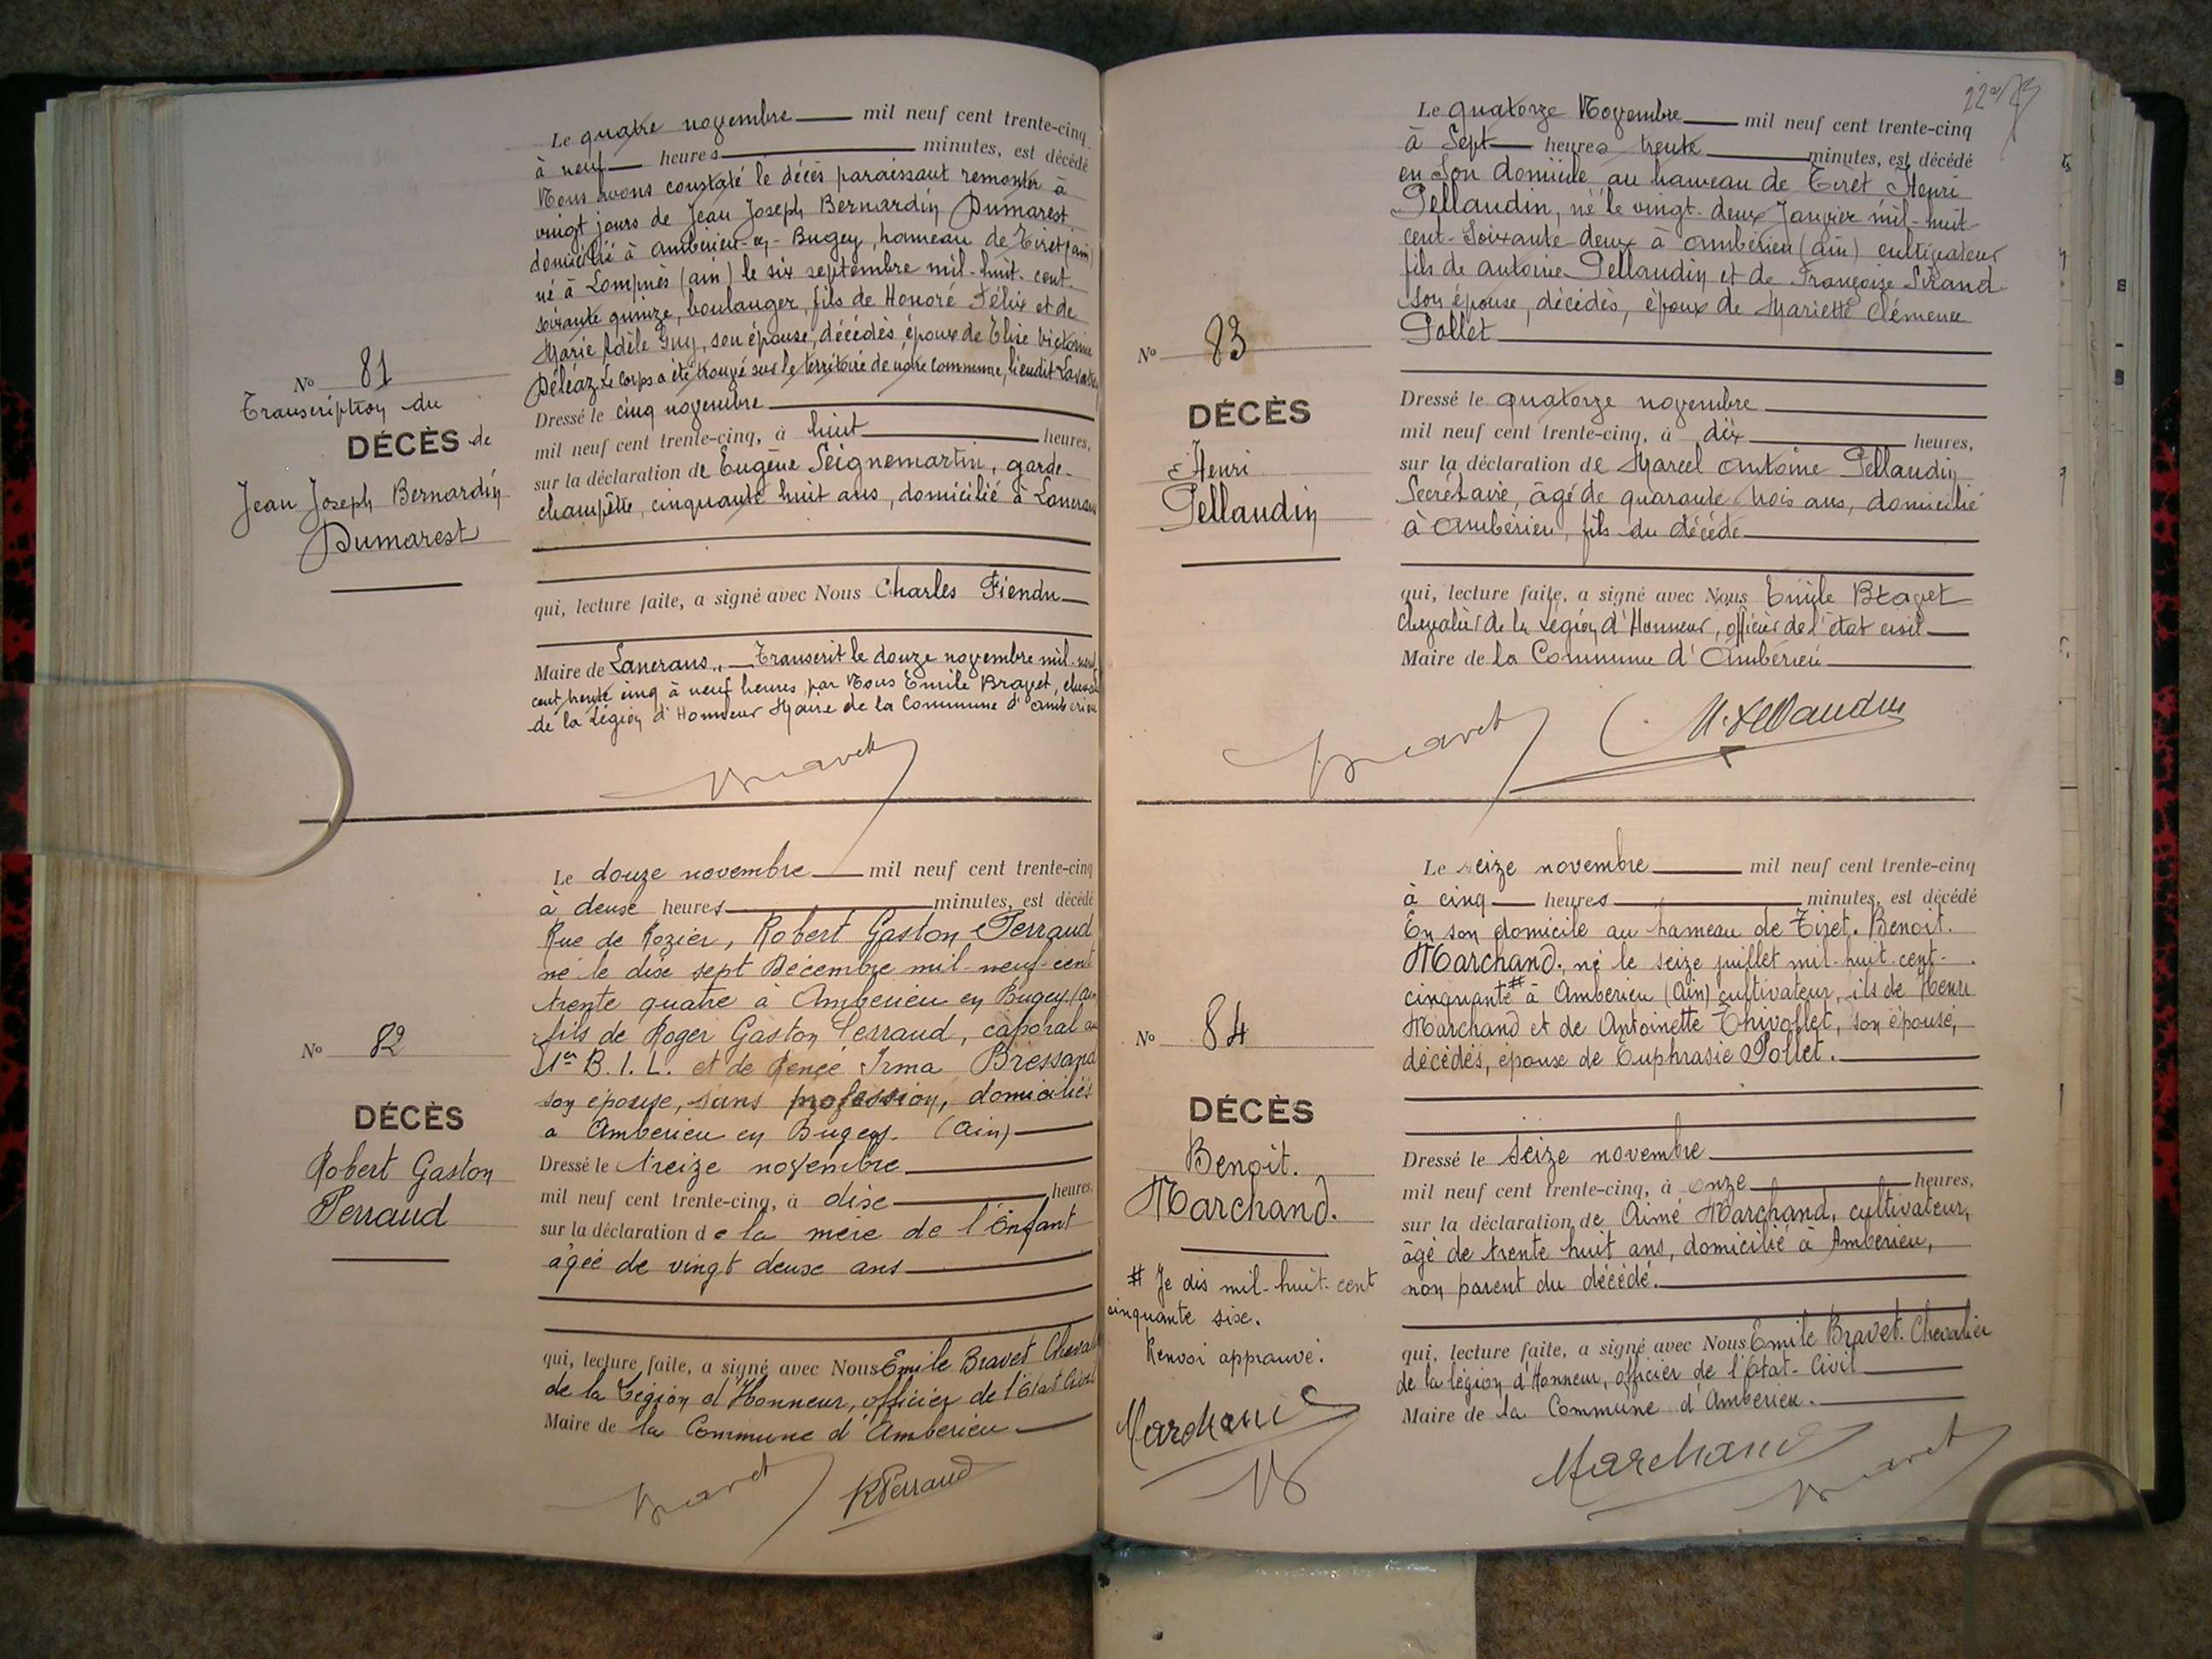 Le quatre novembre mil neuf cent trente-cinq
à neuf heures minutes, est décédé
Nous avons constaté le décès paraissant remonter à
vingt jours de Jean Joseph Bernardin Dumarest
domicilié à Ambérieu-en-Bugey, hameau de Tiret (ain)
né à Lompnès (ain) le six septembre mil-huit-cent-
soixante quinze, boulanger, fils de Honoré Félix et de
Marie Adèle Guy, son épouse, décédés, époux de Elise Victorine
Déléaz. Le corps a été trouvé sur le territoire de notre commune, lieudit
N° 81
Transcription du
DÉCÈS de
Jean Joseph Bernardin
Dumarest
Dressé le cinq novembre
mil neuf cent trente-cinq, à huit heures,
sur la déclaration de Eugène Seignemartin, garde-
champêtre, cinquante huit ans, domicilié à Lancrans
qui, lecture faite, a signé avec Nous Charles Fiendu
Maire de Lancrans. Transcrit le douze novembre mil-neuf
cent trente cinq à neuf heures par Nous Emile Bravet,
de la Légion d'Honneur Maire de la Commune d'Ambérieu
Bravet
Le douze novembre mil neuf cent trente-cinq
à deux heures minutes, est décédé
Rue de Rozier, Robert Gaston Perraud
né le dix sept Décembre mil-neuf-cent
trente quatre à Amberieu en Bugey (ain
fils de Roger Gaston Perraud, caporal au
B. I. L. et de Renée Irma Bressand
son épouse, sans profession, domiciliés
a Amberieu en Bugey. (Ain)
N° 82
DÉCÈS
Robert Gaston
Perraud
Dressé le treize novembre
mil neuf cent trente-cinq, à dix heures,
sur la déclaration de la mère de l'Enfant
âgée de vingt deux ans
qui, lecture faite, a signé avec Nous Emile Bravet Cheval
de la Légion d'Honneur, officier de l'état Civil
Maire de la Commune d'Amberieu
Bravet RPerraud
Le quatorze Novembre mil neuf cent trente-cinq
à Sept heures trente minutes, est décédé
en Son domicile au hameau de Tiret Henri
Pellaudin, né le vingt-deux Janvier mil-huit
cent-Soixante deux à Ambérieu (ain) cultivateur
fils de Antoine Pellaudin et de Françoise Sirand
son épouse, décédés, époux de Mariette Clémence
Pollet
N° 83
DÉCÈS
Henri
Pellaudin
Dressé le quatorze novembre
mil neuf cent trente-cinq, à dix heures,
sur la déclaration de Marcel Antoine Pellaudin
Secrétaire, âgé de quarante trois ans, domicilié
à Ambérieu, fils du décédé
qui, lecture faite, a signé avec Nous Emile Bravet
Chevalier de la Légion d'Honneur, officier de l'état civil
Maire de la Commune d'Ambérieu
Bravet M. Pellaudin
Le seize novembre mil neuf cent trente-cinq
à cinq heures minutes, est décédé
En son domicile au hameau de Tiret. Benoit.
Marchand. né le seize juillet mil-huit-cent-
cinquante # à Ambérieu (Ain) cultivateur, fils de Henri
Marchand et de Antoinette Thivollet, son épouse,
décédés, épouse de Euphrasie Pollet.
N° 84
DÉCÈS
Benoit.
Marchand.
# Je dis mil-huit-cent
cinquante six.
Renvoi approuvé.
Marchand
B
Dressé le seize novembre
mil neuf cent trente-cinq, à onze heures,
sur la déclaration de Aimé Marchand, cultivateur,
âgé de trente huit ans, domicilié à Ambérieu,
non parent du décédé.
qui, lecture faite, a signé avec Nous Emile Bravet. Chevalier
de la légion d'Honneur, officier de l'état-Civil
Maire de la Commune d'Amberieu.
Marchand Bravet